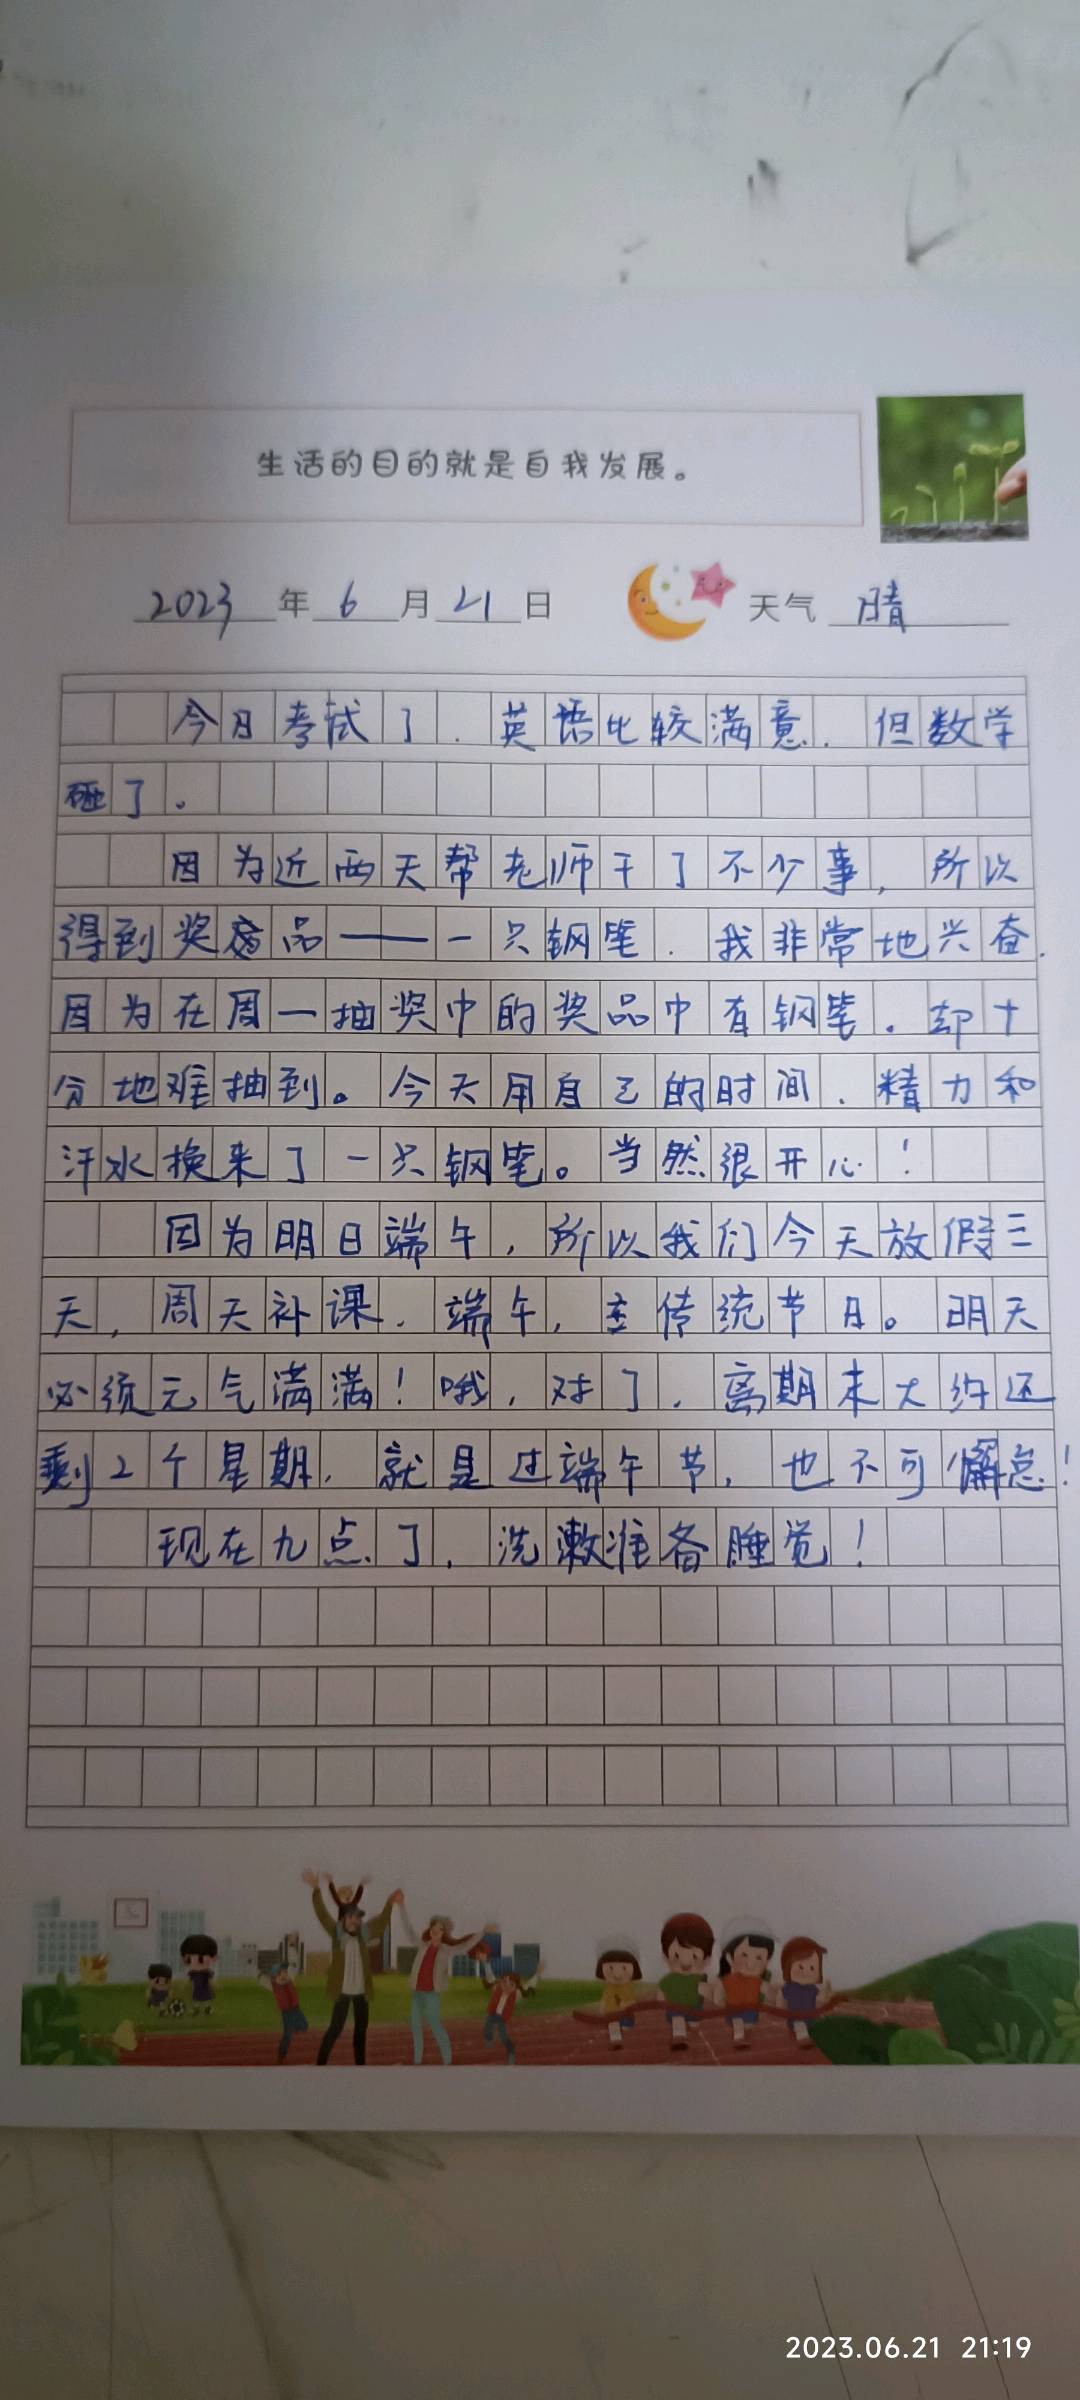 生活的目的就是自我发展。
2023年6月21日 天气 晴
今日考试了.英语比较满意.但数学
砸了。
因为近两天帮老师干了不少事,所以
得到奖品——一只钢笔.我非常地兴奋.
因为在周一抽奖中的奖品中有钢笔.却十
分地难抽到。今天用自己的时间.精力和
汗水换来了一只钢笔。当然很开心!
因为明日端午,所以我们今天放假三
天,周天补课.端午,主传统节日。明天
必须元气满满!哦,对了,离期末大约还
剩2个星期,就是过端午节,也不可懈怠!
现在九点了,洗漱准备睡觉!
2023.06.21 21:19